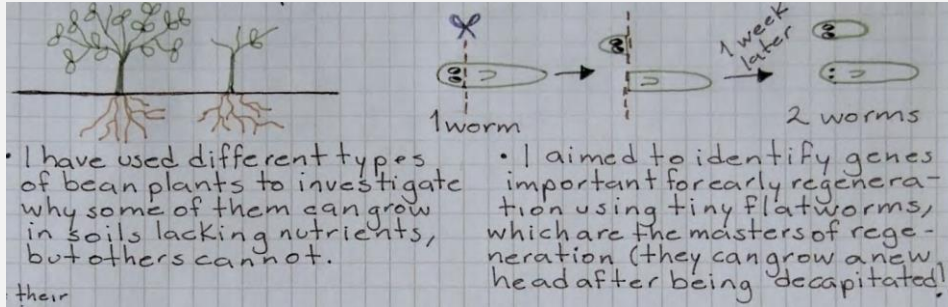 1 week
later
1 worm
2 worms
• I have used different types
of bean plants to investigate
why some of them can grow
in soils lacking nutrients,
but others cannot.
their
• I aimed to identify genes
important for early regenera-
tion using tiny flatworms,
which are the masters of rege-
neration (they can grow a new
head after being decapitated!